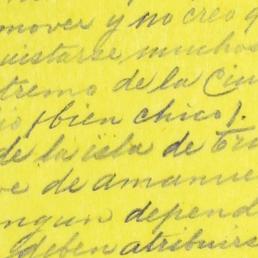 mover y no creo q
uistarse muchos
tremo de la Ciu
o (bien chico).
de la isla de Tri
e de amanue
ngun depend
deben atribuirs